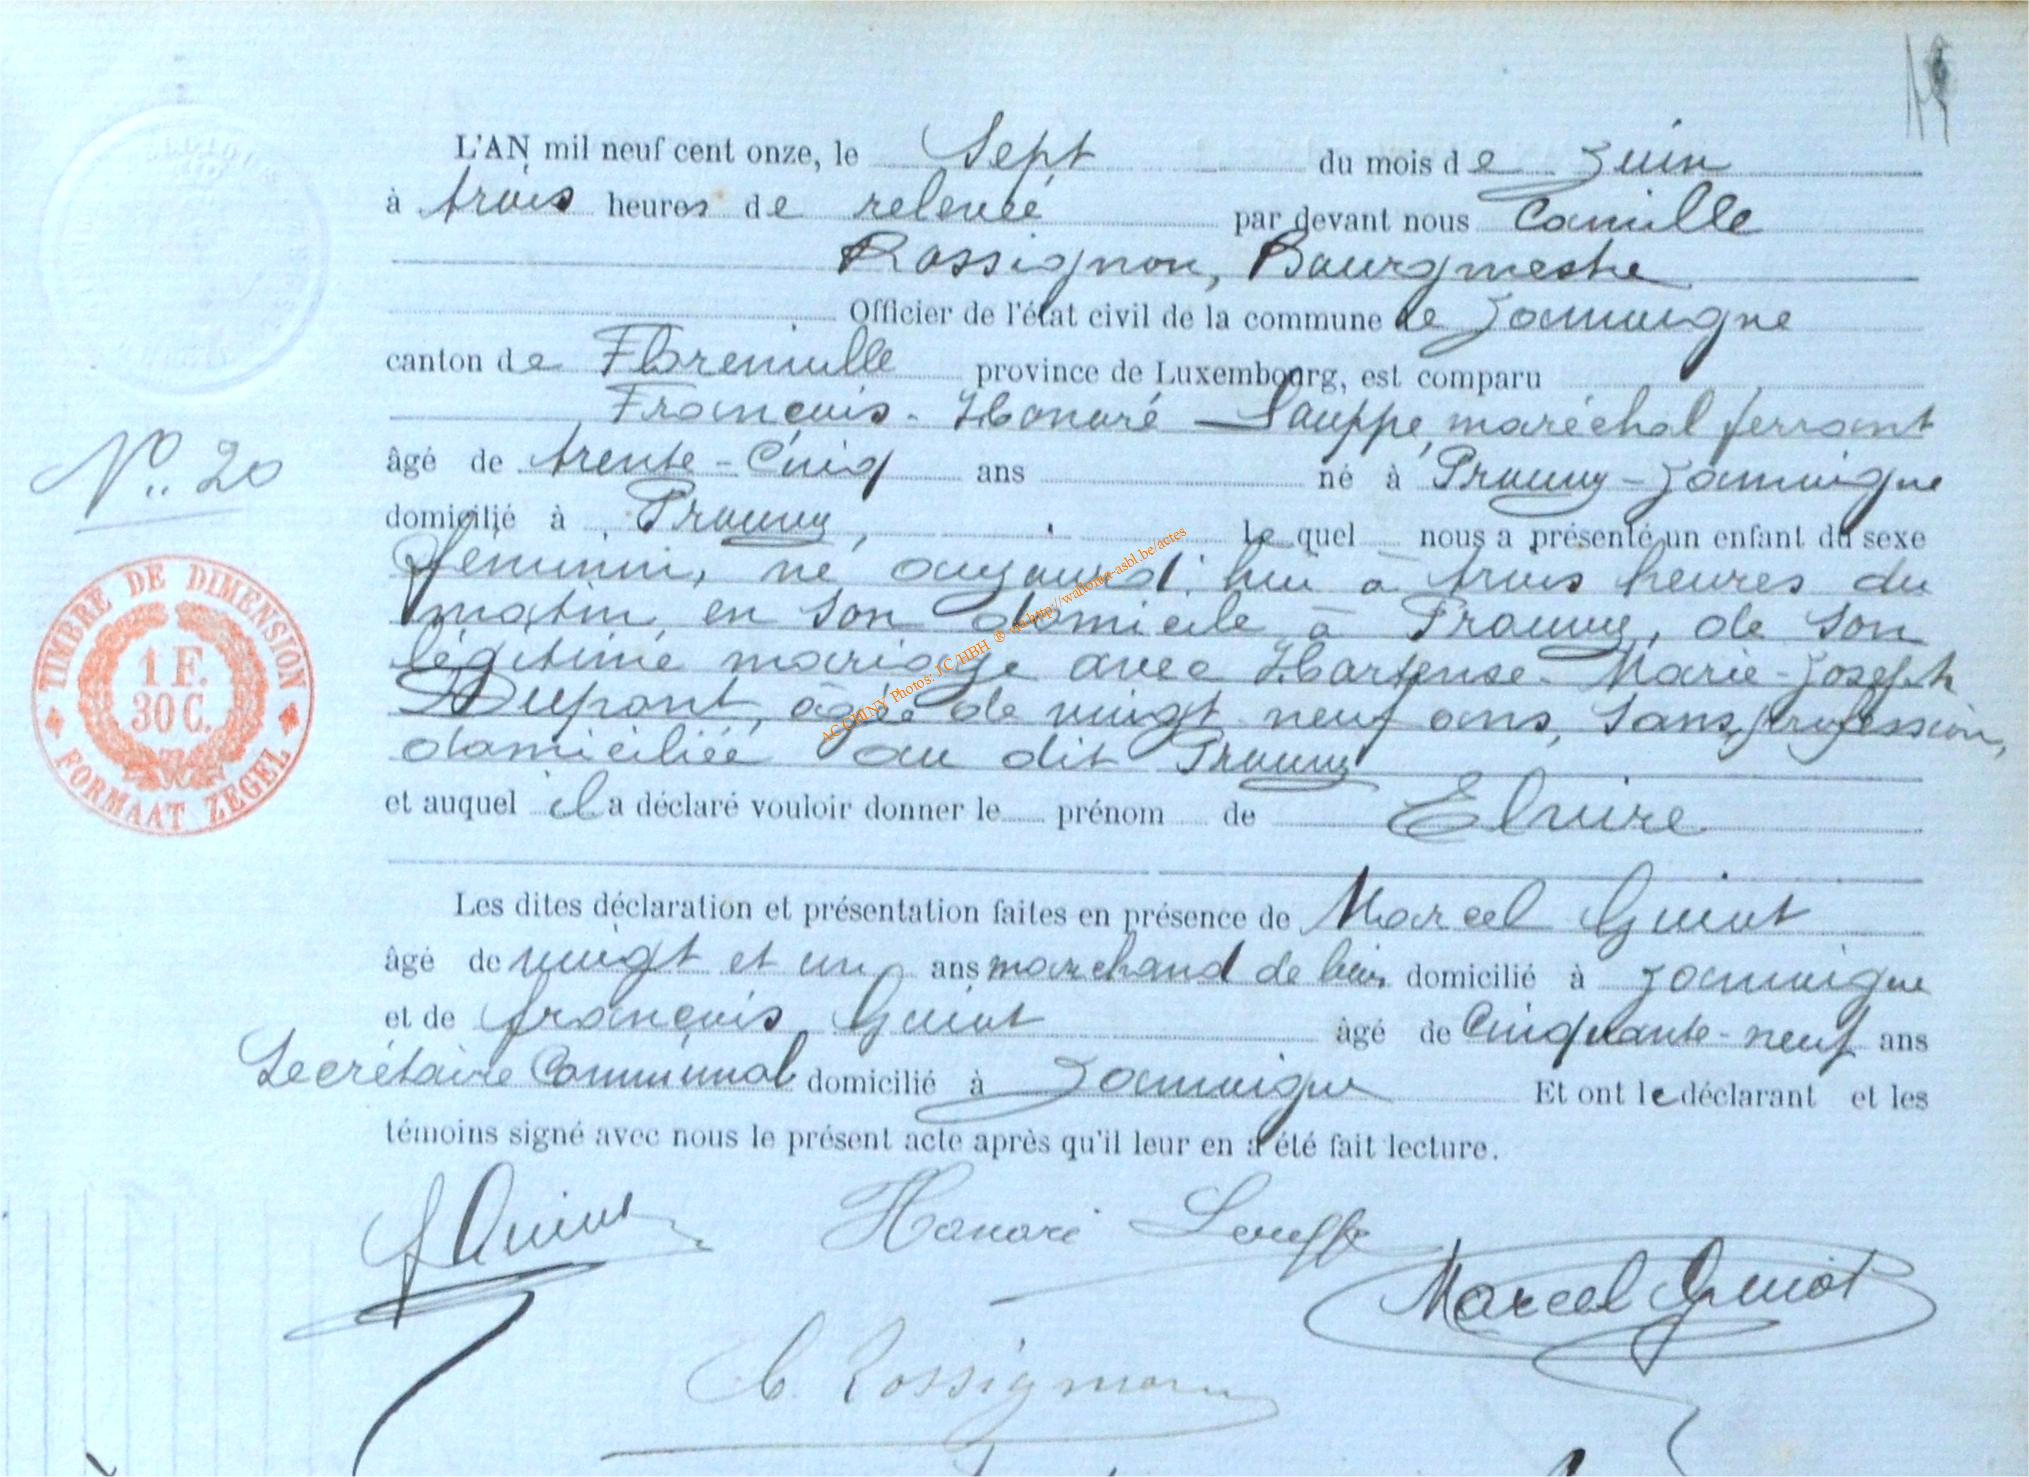 L'AN mil neuf cent onze, le Sept du mois de Juin
à trois heures de relevée par devant nous Camille
Rossignon, Bourgmestre
Officier de l'état civil de la commune de Jamoigne
canton de Florenville province de Luxembourg, est comparu
François-Honoré Louppe, maréchal ferrant
âgé de trente-Cinq ans né à Prouvy-Jamoigne
domicilié à Prouvy, le quel nous a présenté un enfant du sexe
féminin, né aujourd'hui à trois heures du
matin, en son domicile à Prouvy, de son
légitime mariage avec Hortense-Marie-Joseph
Dupont, âgée de vingt neuf ans, sans profession,
domiciliée au dit Prouvy
et auquel il a déclaré vouloir donner le prénom de Elvire
Les dites déclaration et présentation faites en présence de Marcel Guiot
âgé de vingt et un ans marchand de domicilié à Jamoigne
et de François Guiot âgé de Cinquante-neuf ans
Secrétaire Communal domicilié à Jamoigne Et ont le déclarant et les
témoins signé avec nous le présent acte après qu'il leur en a été fait lecture.
N° 20
TIMBRE DE DIMENSION
1 F.
30 C.
FORMAAT ZEGEL
AC CHINY Photos: JC/HBH ® via http://wanoma-asbl.be/actes
f Guiot
Honoré Louppe
Marcel Guiot
C. Rossignon